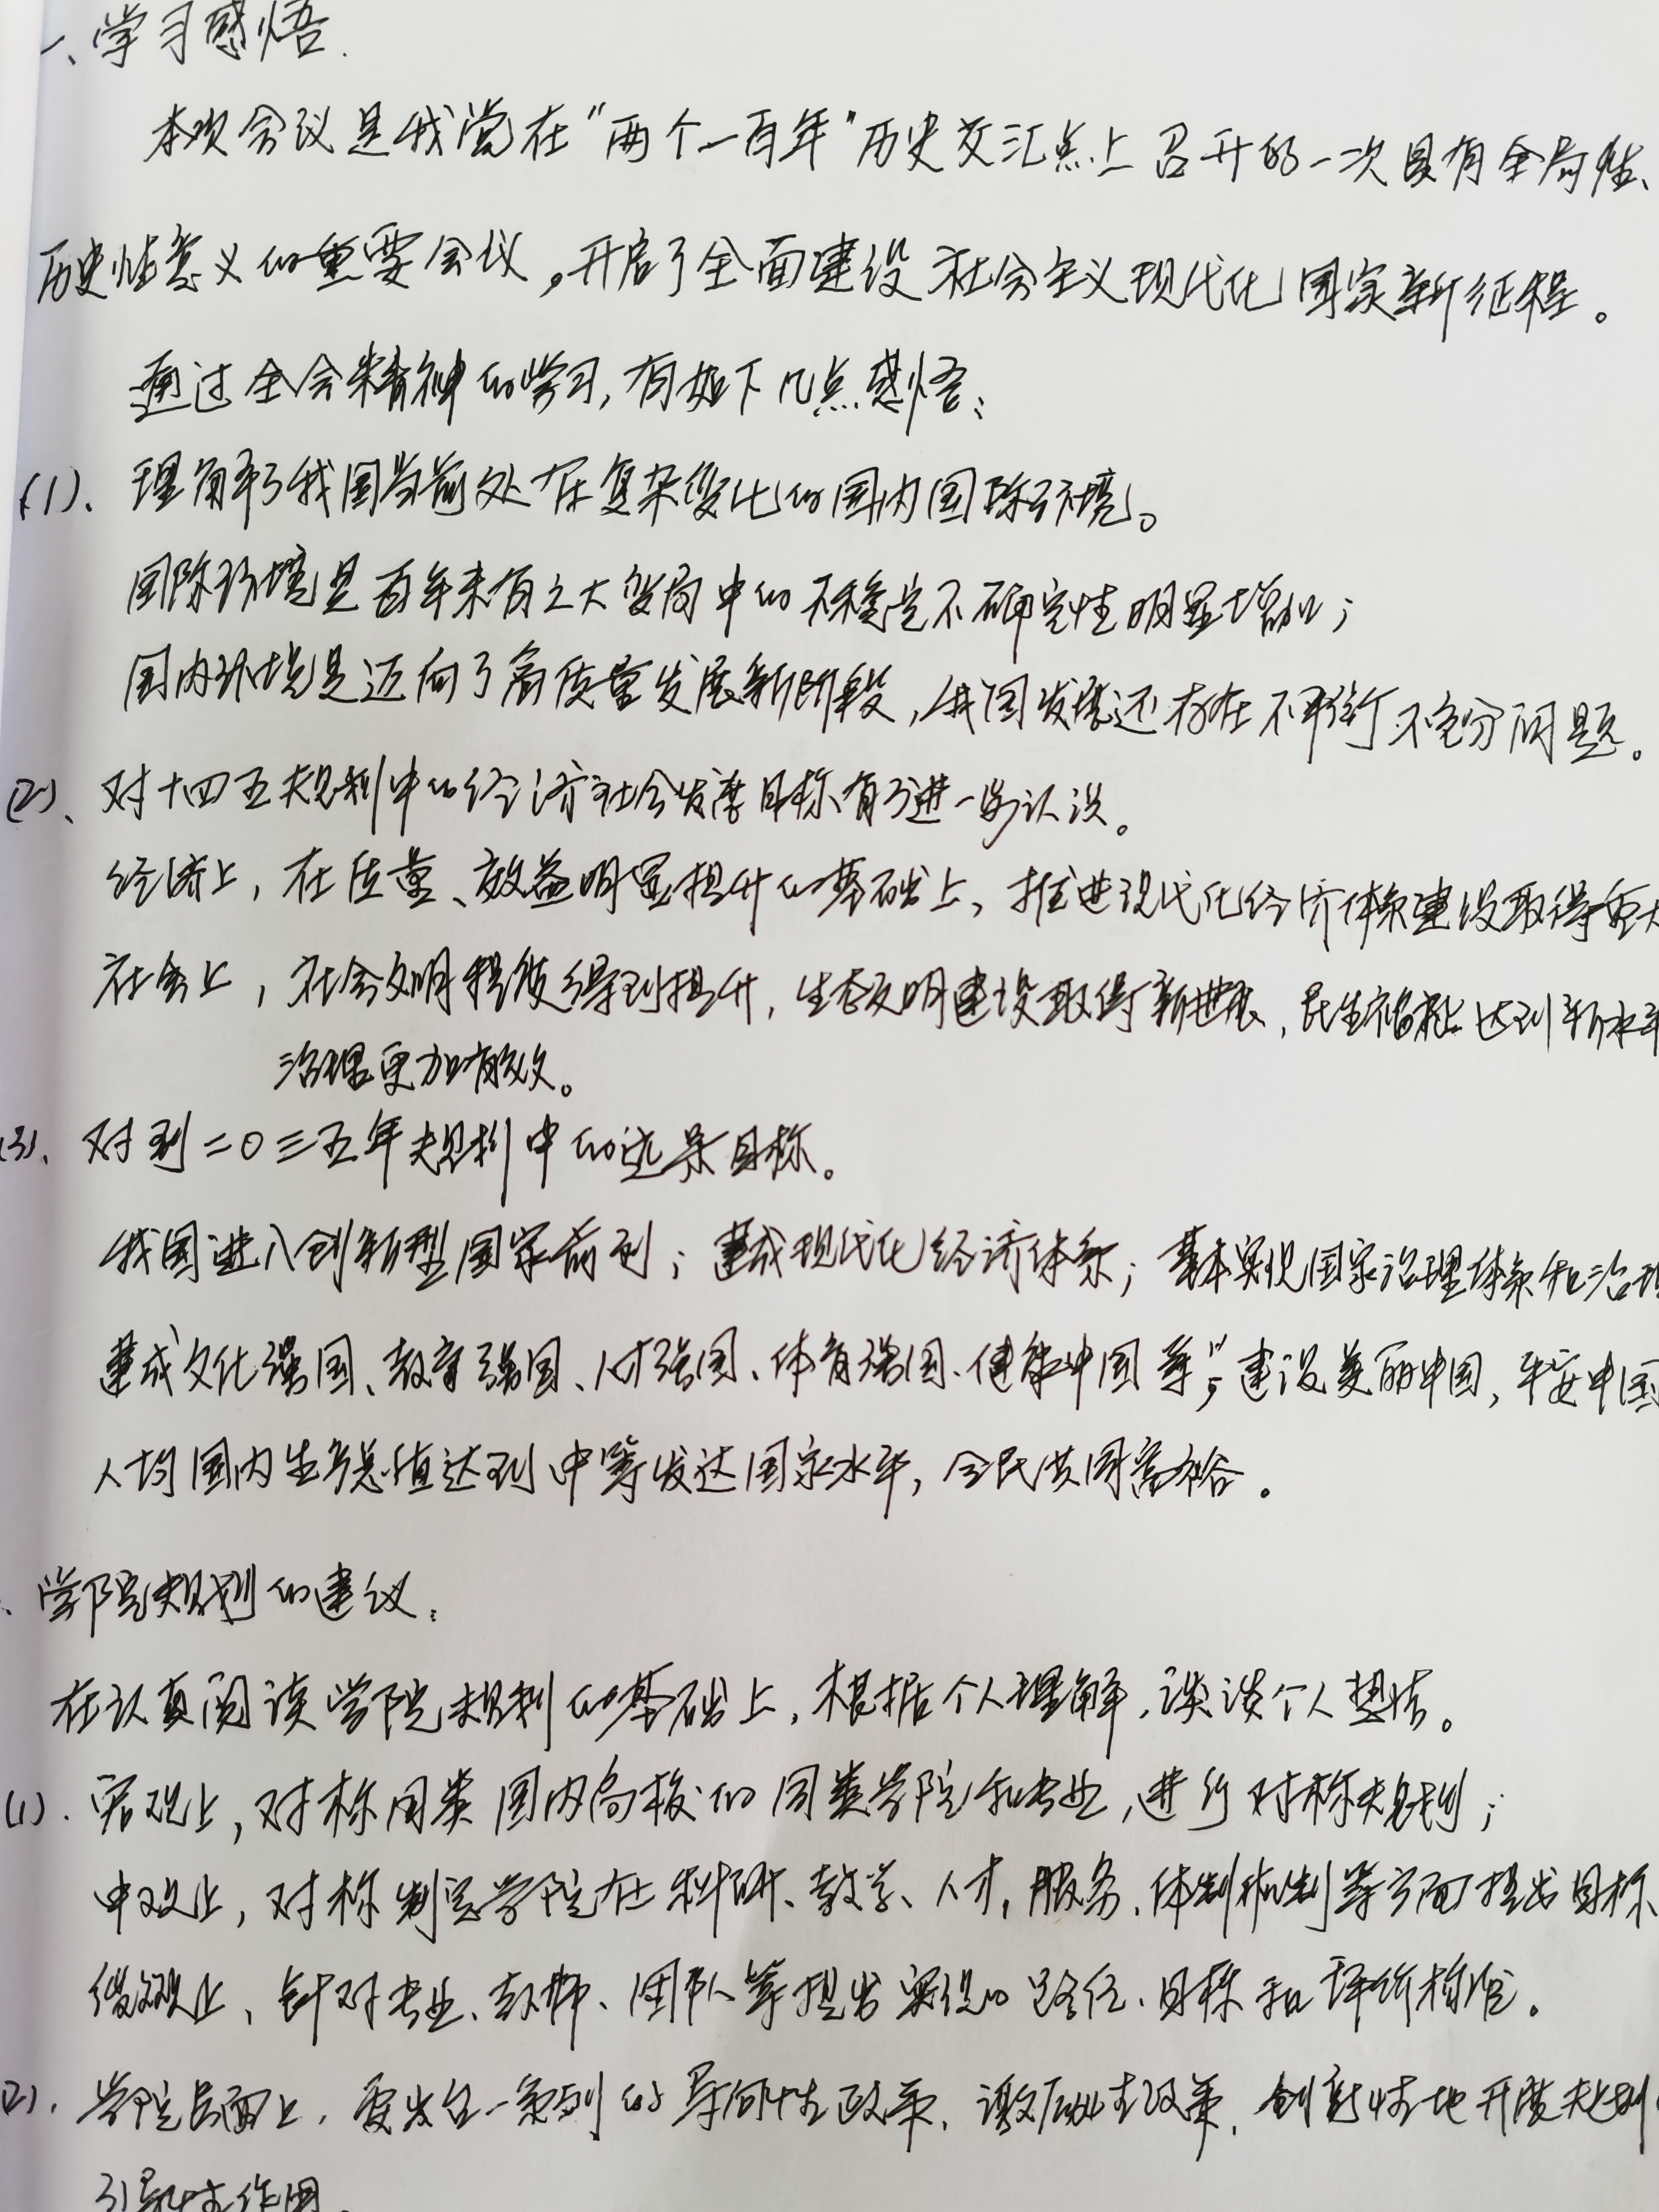 一、学习感悟.
本次会议是我党在"两个一百年"历史交汇点上召开的一次具有全局性、
历史性意义的重要会议,开启了全面建设社会主义现代化国家新征程。
通过全会精神的学习,有如下几点感悟:
(1)、理解了我国当前处在复杂变化的国内国际环境。
国际环境是百年未有之大变局中的不稳定不确定性明显增加;
国内环境是迈向了高质量发展新阶段,我国发展还存在不平衡不充分问题。
(2)、对十四五规划中的经济社会发展目标有了进一步认识。
经济上,在质量、效益明显提升的基础上,推进现代化经济体系建设取得重大
社会上,社会文明程度得到提升,生态文明建设取得新进展,民生福祉达到新水平
治理更加有效。
(3)、对到二〇三五年规划中的远景目标。
我国进入创新型国家前列;建成现代化经济体系;基本实现国家治理体系和治理
建成文化强国、教育强国、人才强国、体育强国、健康中国等;建设美丽中国,平安中国
人均国内生产总值达到中等发达国家水平,全民共同富裕。
、学院规划的建议:
在认真阅读学院规划的基础上,根据个人理解,谈谈个人想法。
(1).宏观上,对标同类国内高校的同类学院和专业,进行对标规划;
中观上,对标制定学院在科研、教学、人才,服务,体制机制等方面提出目标、
微观上、针对专业、教师、团队等提出实现的路径、目标和评价标准。
(2).学院层面上,要出台一系列的导向性政策,激励性政策,创新性地开展规划
引导性作用。